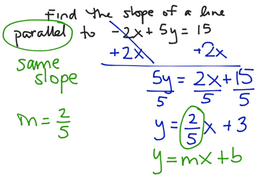 Find the slope of a line
parallel to -2x + 5y = 15
+2x +2x
same
slope
5y = 2x + 15
5 5 5
m = 2/5
y = 2/5 x + 3
y = mx + b